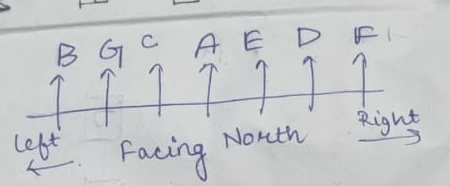 B G C A E D F
Left Facing North Right